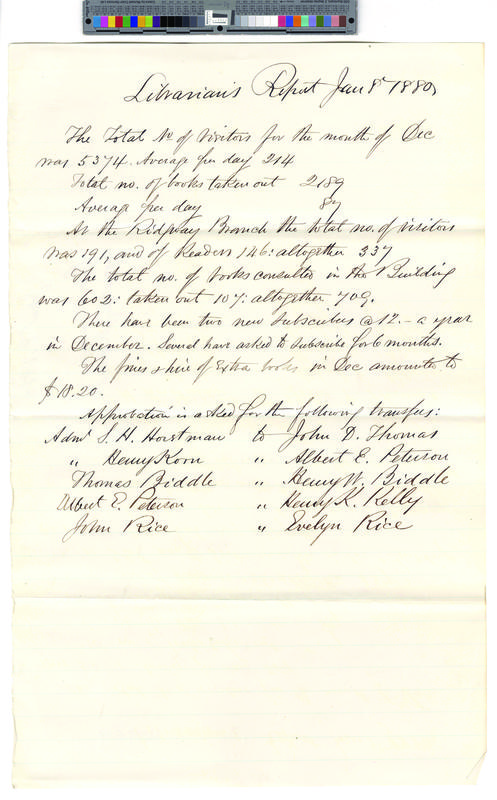 Librarian's Report Jan 8th 1880
The Total No of Visitors for the month of Dec
was 5374. Average per day 214
Total no. of books taken out 2189
Average per day 87
At the Ridgway Branch the total no. of visitors
was 191, and of Readers 146: altogether 337
The total no. of books consulted in the Building
was 602: taken out 107: altogether 709.
There have been two new subscribers @ 12. – a year
in December. Several have asked to subscribe for 6 months.
The fines & hire of Extra books in Dec amounted to
$18.20.
Approbation is asked for the following transfers:
Admr S. H. Horstman to John D. Thomas
" Henry Korn " Albert E. Peterson
Thomas Biddle " Henry W. Biddle
Albert E. Peterson " Henry K. Kelly
John Rice " Evelyn Rice